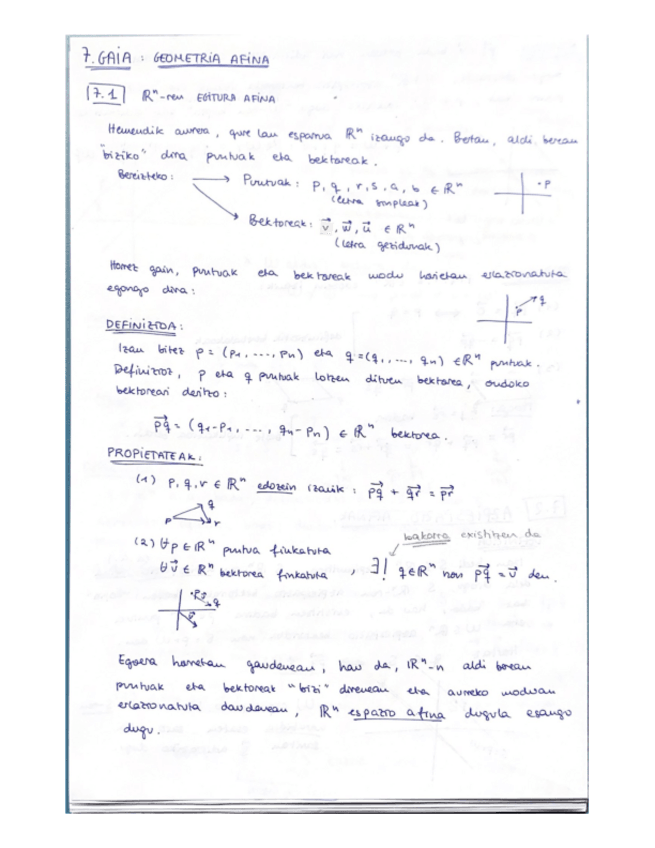 7. GAIA : GEOMETRIA AFINA
7.1 ℝⁿ-ren EGITURA AFINA
Hemendik aurrera, gure lan esparrua ℝⁿ izango da. Bertan, aldi berean
"biziko" dira puntuak eta bektoreak.
Bereizteko: → Puntuak: p, q, r, s, a, b ∈ ℝⁿ
(letra sinpleak)
·p
→ Bektoreak: v⃗, w⃗, u⃗ ∈ ℝⁿ
(letra gezidunak)
Horrez gain, puntuak eta bektoreak modu honetan erlazionatuta
egongo dira:
p q
DEFINIZIOA:
Izan bitez p = (p₁, ..., pₙ) eta q = (q₁, ..., qₙ) ∈ ℝⁿ puntuak.
Definizioz, p eta q puntuak lotzen dituen bektorea, ondoko
bektoreari deritzo:
p͞q⃗ = (q₁-p₁, ..., qₙ-pₙ) ∈ ℝⁿ bektorea.
PROPIETATEAK:
(1) p, q, r ∈ ℝⁿ edozein izanik : pq⃗ + qr⃗ = pr⃗
p q r
bakarra existitzen da
(2) ∀p ∈ ℝⁿ puntua finkatuta
∀v⃗ ∈ ℝⁿ bektorea finkatuta , ∃! q∈ℝⁿ non pq⃗ = v⃗ den.
p q
v⃗
Egoera honetan gaudenean, hau da, ℝⁿ-n aldi berean
puntuak eta bektoreak "bizi" direnean eta aurreko moduan
erlazionatuta daudenean, ℝⁿ espazio afina dugula esango
dugu.